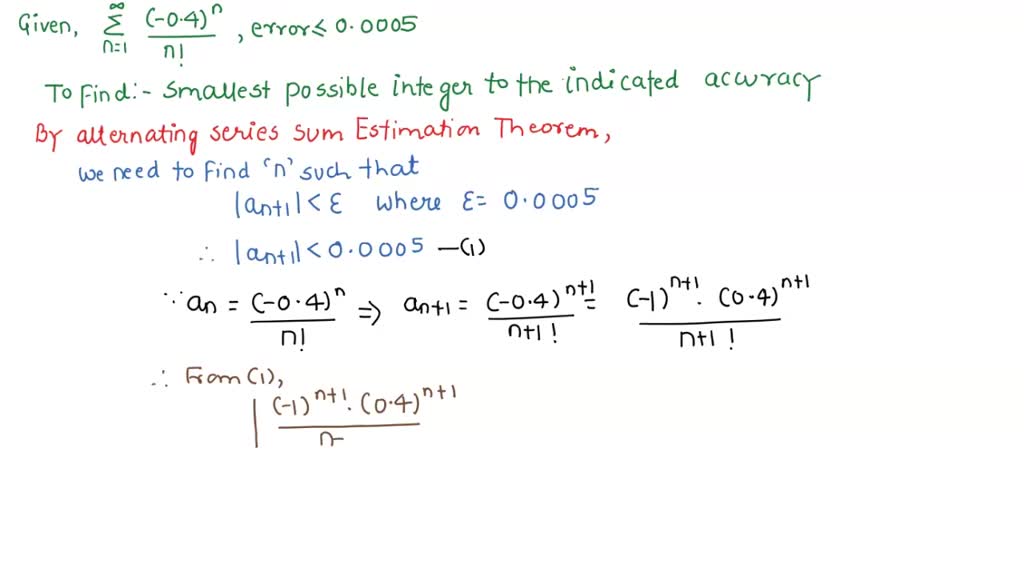 Given, ∞∑n=1 (-0.4)^n / n! , error ≤ 0.0005
To Find:- smallest possible integer to the indicated accuracy
By alternating series sum Estimation Theorem,
we need to find 'n' such that
|an+1| < ε where ε = 0.0005
∴ |an+1| < 0.0005 —(1)
∵ an = (-0.4)^n / n! ⇒ an+1 = (-0.4)^n+1 / n+1 ! = (-1)^n+1 . (0.4)^n+1 / n+1 !
∴ From (1),
| (-1)^n+1 . (0.4)^n+1 / n-